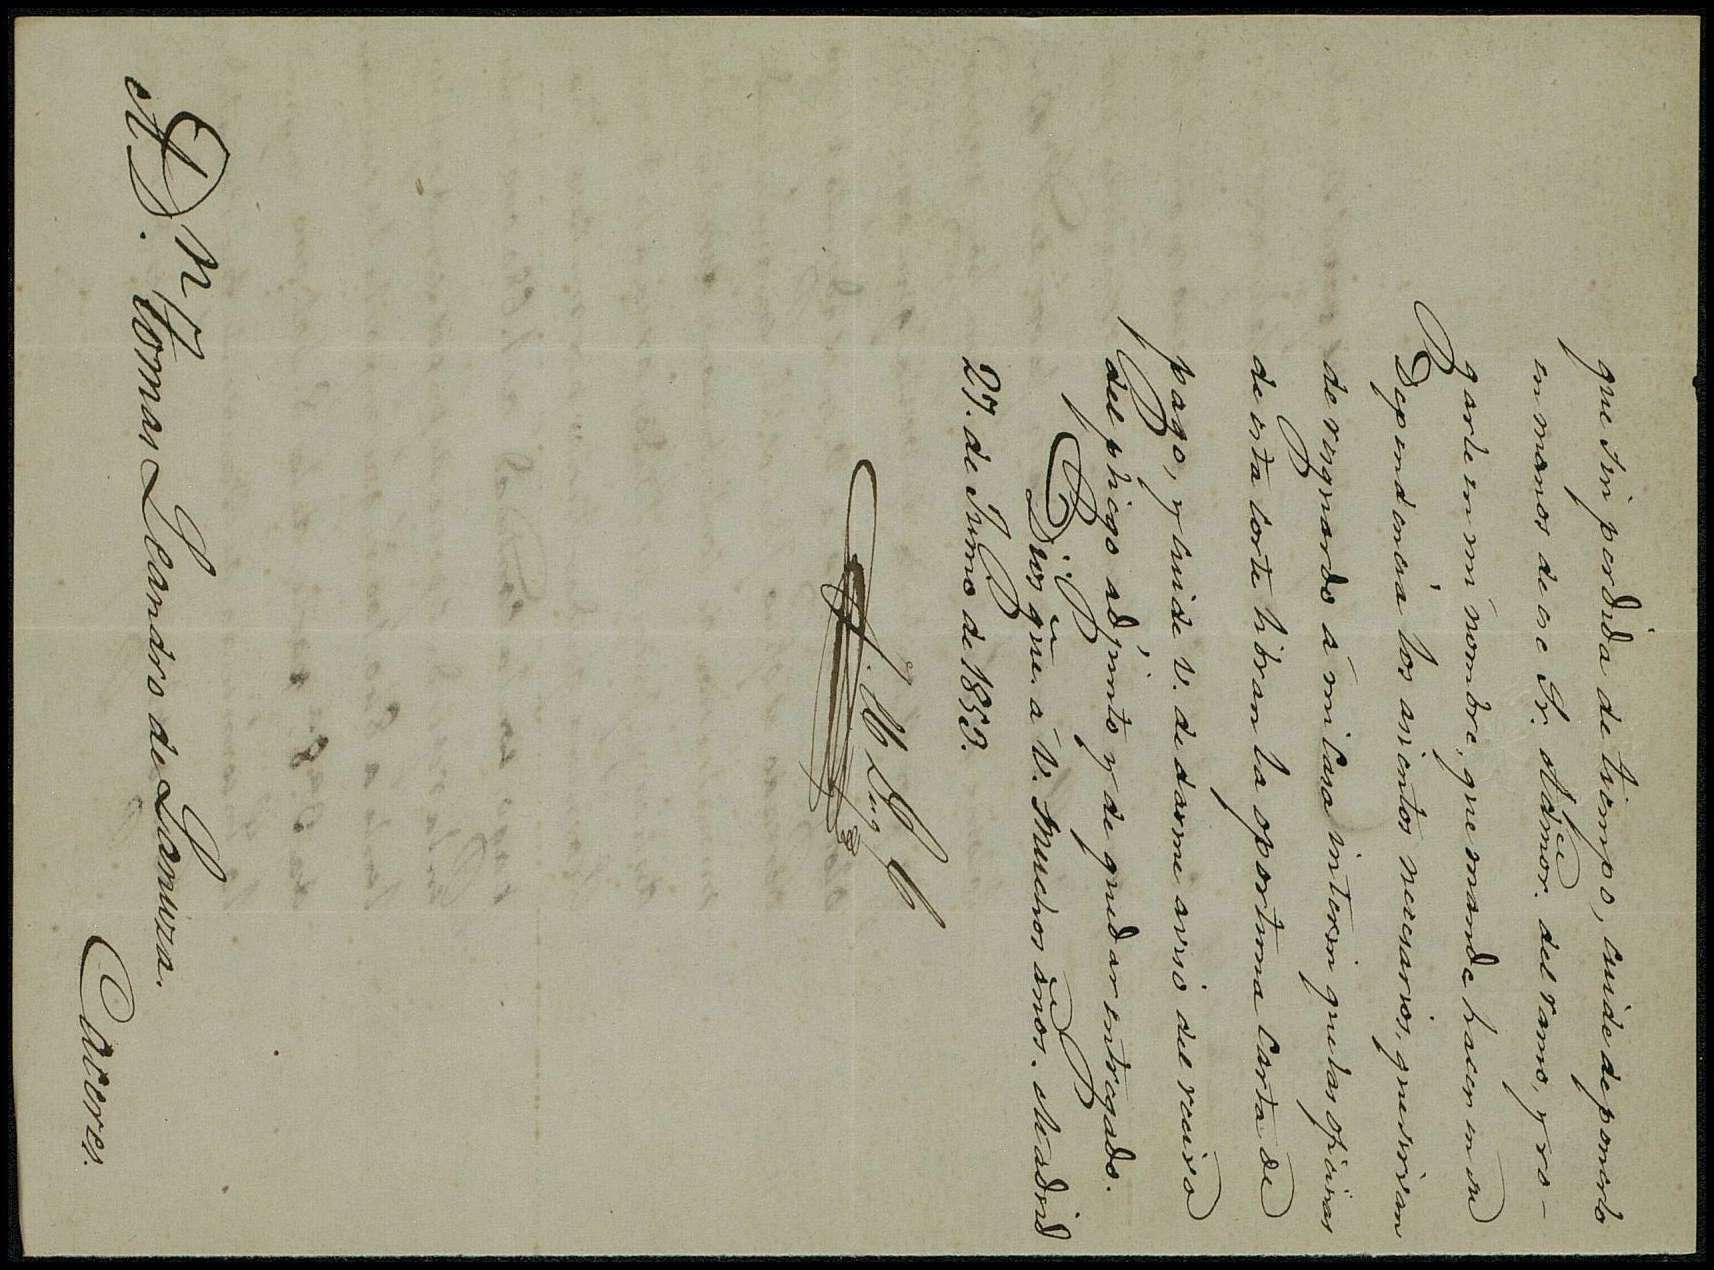 que sin perdida de tiempo, cuide de ponerlo
en manos de ese Sr. Admor. del ramo, y ro-
garle en mi nombre, que mande hacer en su
Dependencia los asientos necesarios, que sirvan
de resguardo á mi Casa interin que las oficinas
de esta corte libran la oportuna Carta de
pago, y cuide V. de darme aviso del recivo
del pliego adjunto y de quedar entregado.
Dios gue. a V. muchos años. Madrid
27. de Junio de 1853.
A D.n Tomas Leandro de Lanuza.
Caceres.